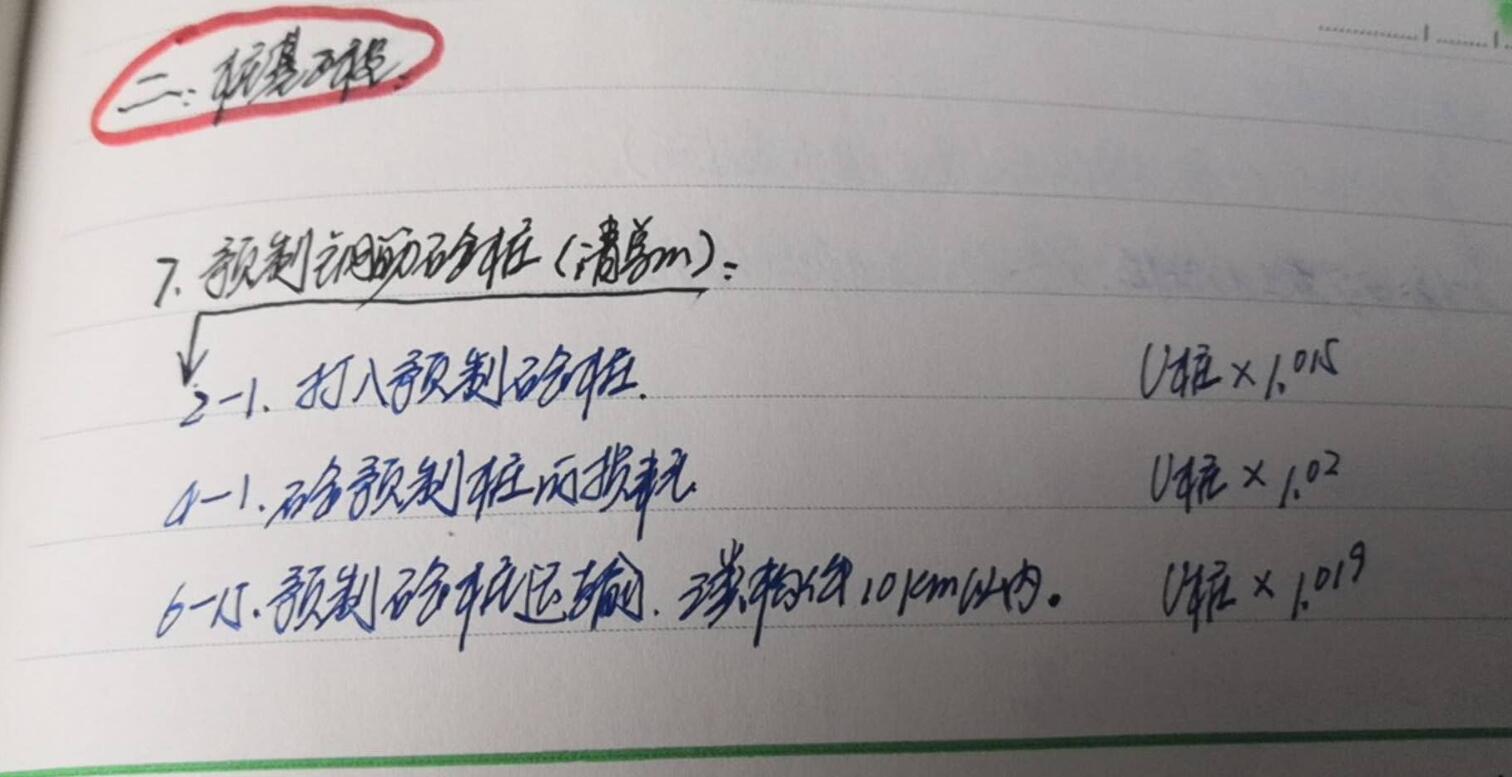 二: 桩基工程.
7. 预制钢筋砼桩(清单m):
2-1. 打入预制砼桩. V桩×1.015
4-1. 砼预制桩 损耗. V桩×1.02
6-15. 预制砼桩运输. 2类构件10km以内. V桩×1.019